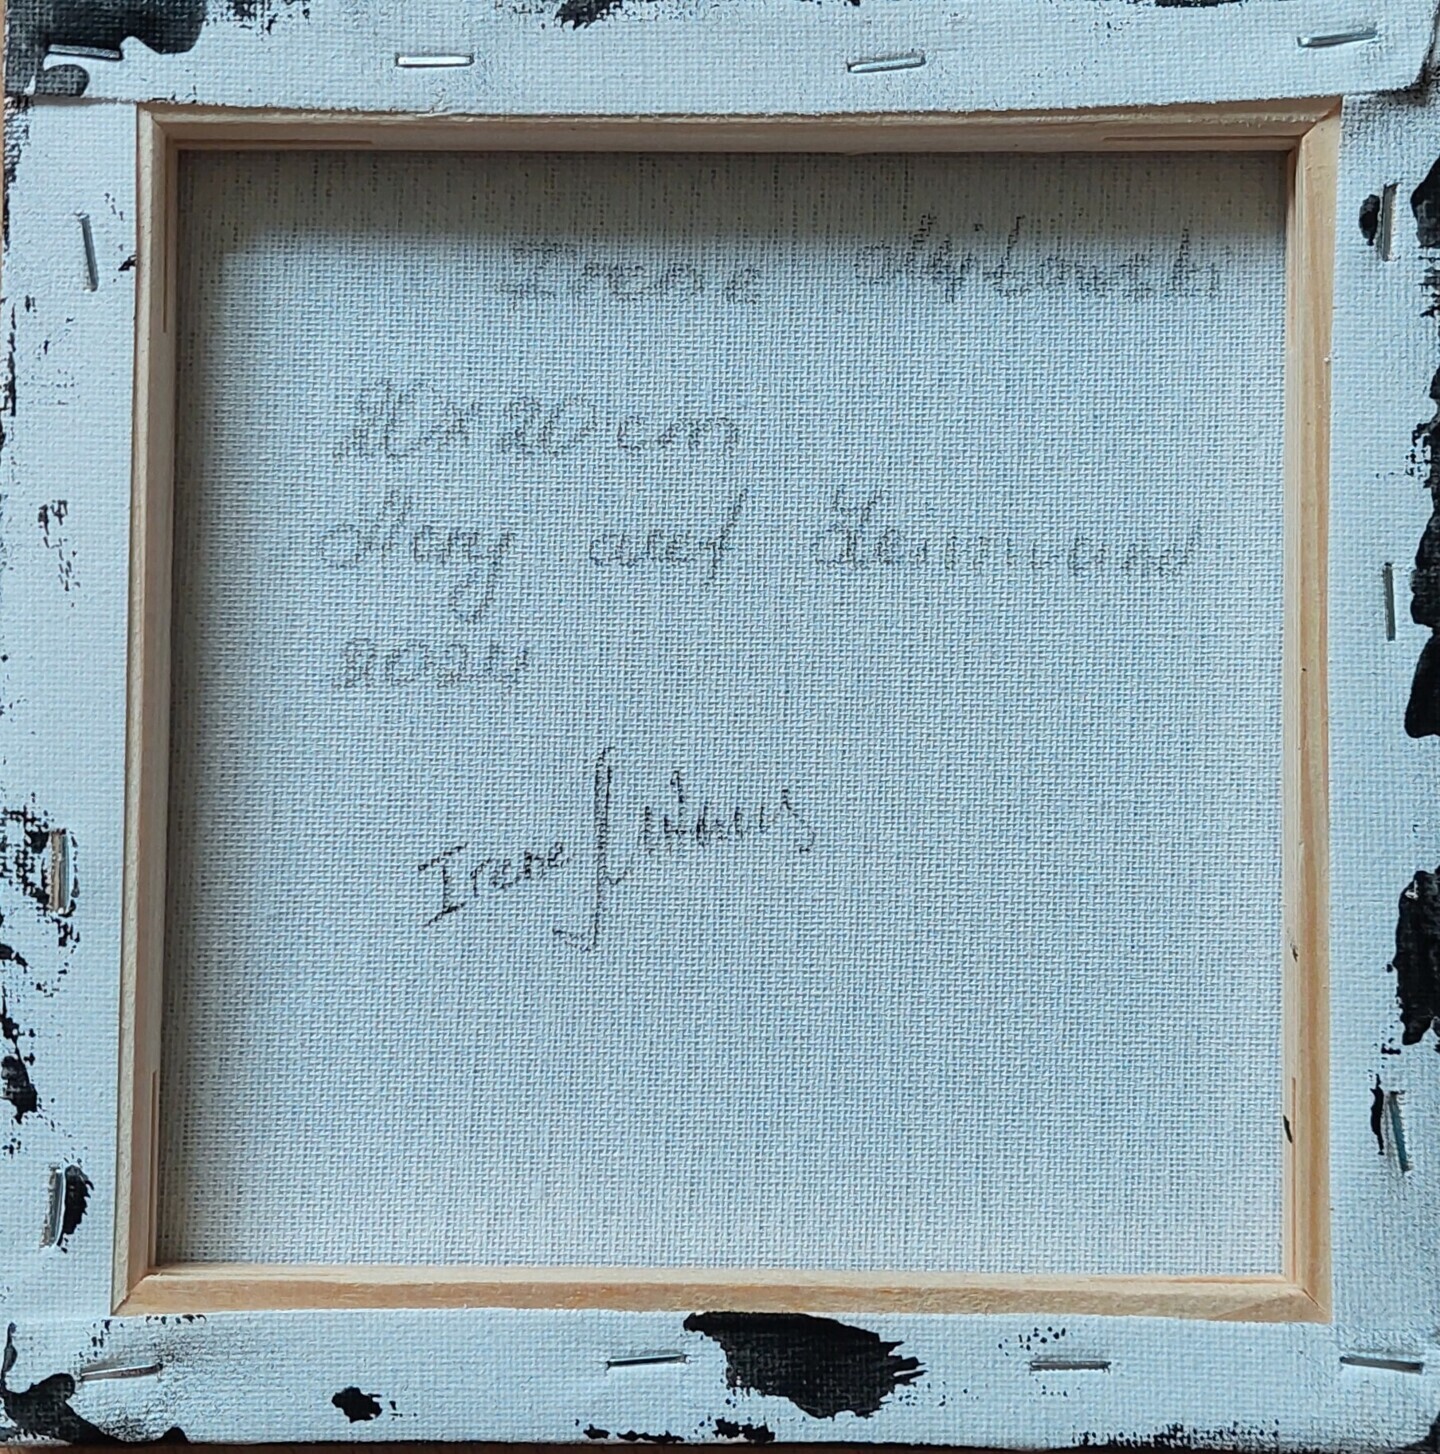 Irene
20 x 20 cm
Acry auf Leinwand
2024
Irene